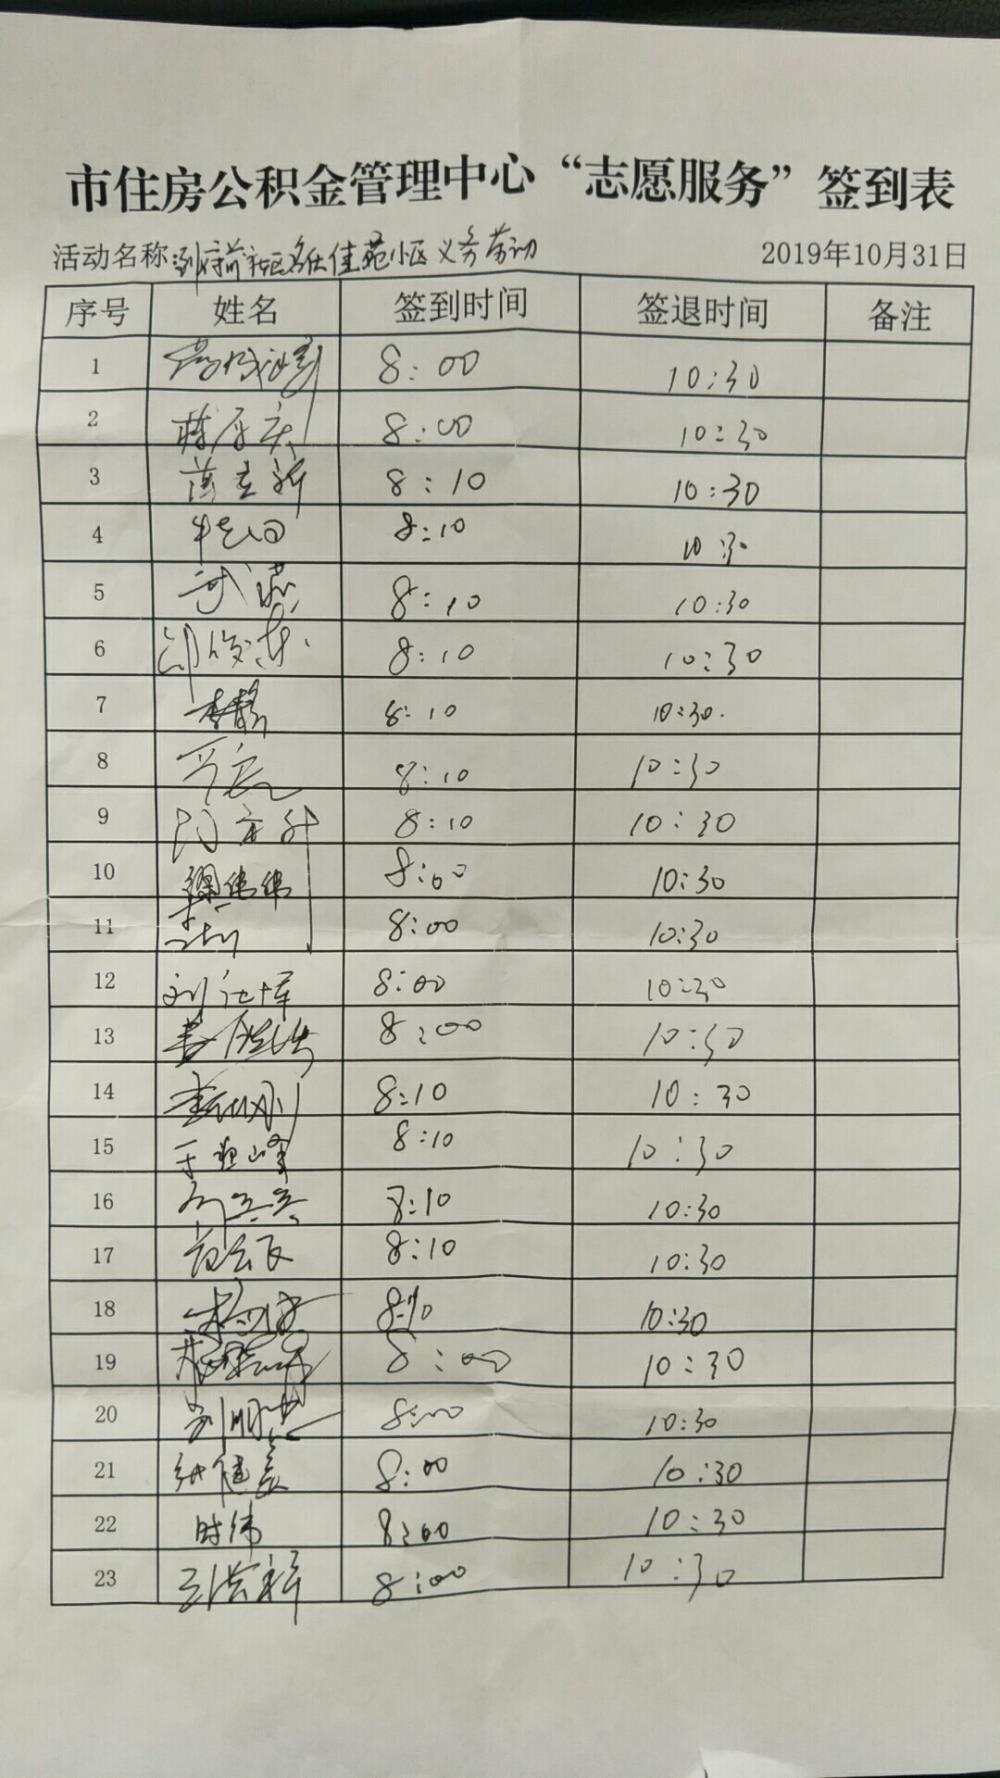 市住房公积金管理中心“志愿服务”签到表
活动名称 到府前社区名仕佳苑小区义务劳动 2019年10月31日
序号 姓名 签到时间 签退时间 备注
1 8:00 10:30
2 8:00 10:30
3 8:10 10:30
4 8:10 10:30
5 武燕 8:10 10:30
6 邵俊东 8:10 10:30
7 李静 8:10 10:30.
8 8:10 10:30
9 8:10 10:30
10 伟伟 8:00 10:30
11 8:00 10:30
12 刘 8:00 10:30
13 姜 8:00 10:30
14 李 刚 8:10 10:30
15 于 峰 8:10 10:30
16 8:10 10:30
17 8:10 10:30
18 8:10 10:30
19 8:00 10:30
20 刘明 8:00 10:30
21 健 8:00 10:30
22 时伟 8:00 10:30
23 王 8:00 10:30